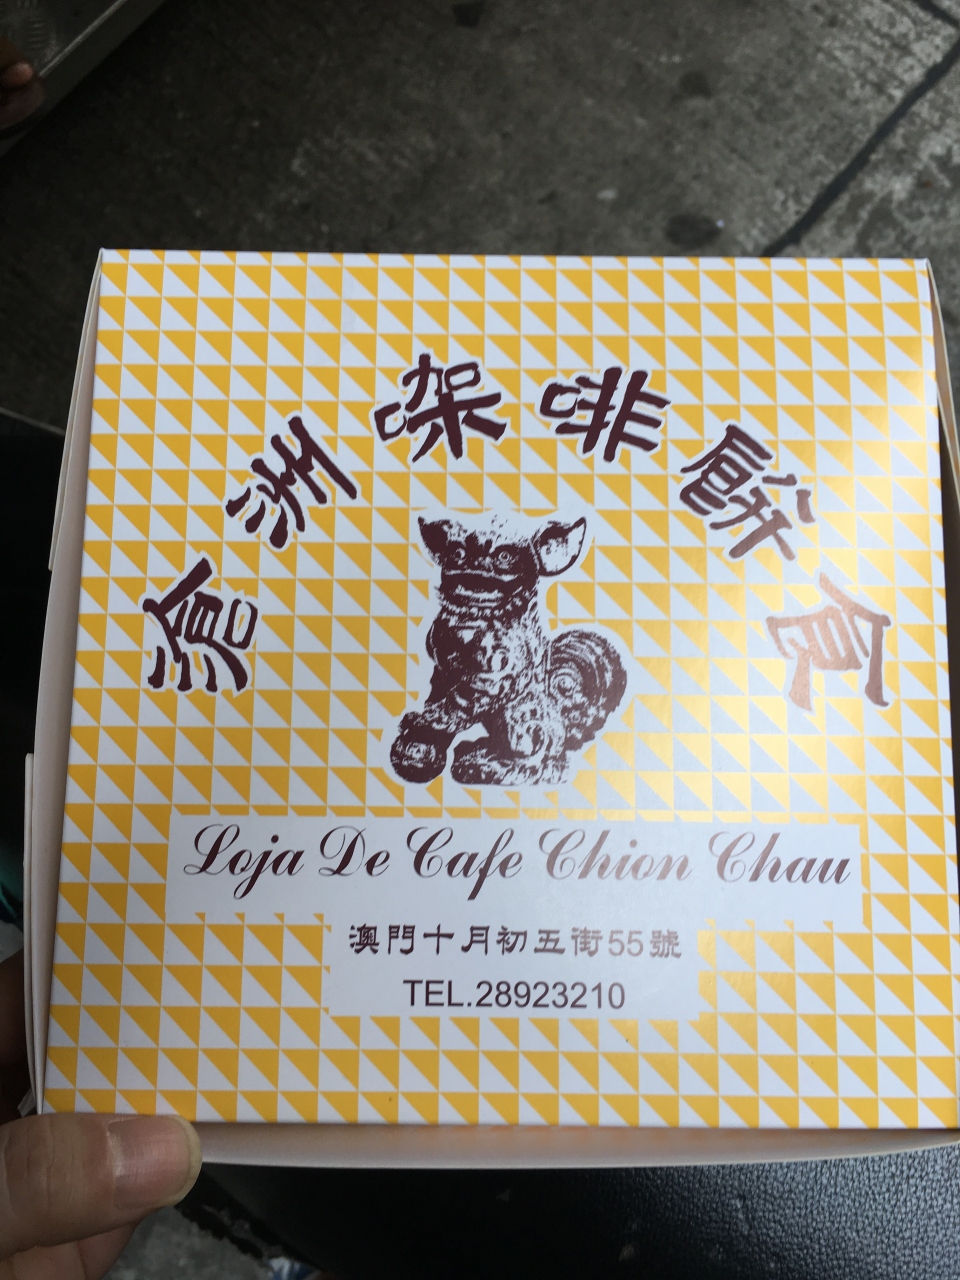 滄洲㗎啡餅食
Loja De Cafe Chion Chau
澳門十月初五街55號
TEL.28923210